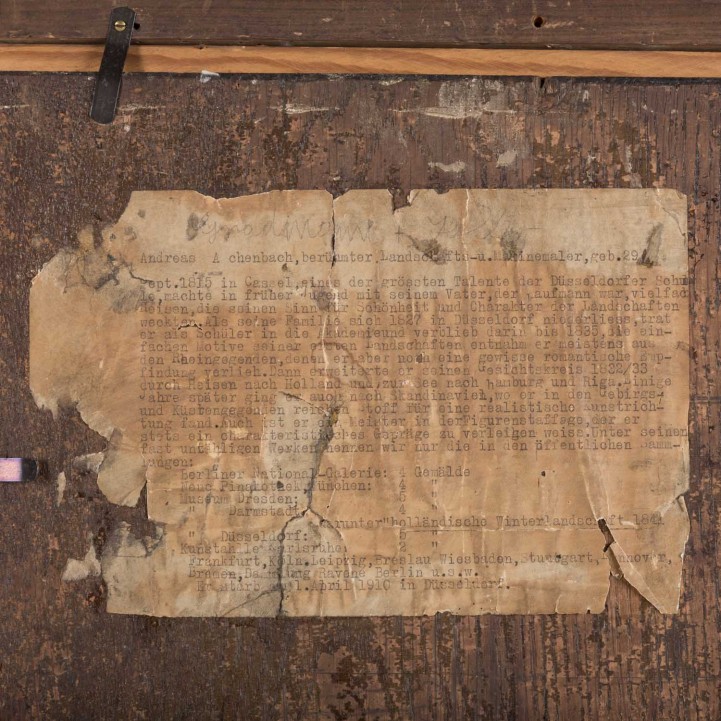 Andreas A chenbach,berühmter Landschafts-u.Marinemaler,geb.29
ept.1815 in Cassel,eines der grössten Talente der Düsseldorfer Schu
le,machte in früher Jugend mit seinem Vater,der aufmann war,vielfac
Reisen,die seinen Sinn für Schönheit und Charakter der Landschaften
weckten.Als seine Familie sich 1827 in Düsseldorf niederliess,trat
er als Schüler in die Akademie und verblieb darin bis 1835.Die ein-
fachen Motive seiner ersten Landschaften entnahm er meistens au
den Rheingegenden,denen er aber noch eine gewisse romantische Emp-
findung verlieh.Dann erweiterte er seinen Gesichtskreis 1832/33
durch Reisen nach Holland und zur See nach Hamburg und Riga.Einige
Jahre später ging er auch nach Skandinavien,wo er in den Gebirgs-
und Küstengegenden reichen Stoff für eine realistische Kunstrich-
tung fand.Auch ist er ein Meister in der Figurenstaffage,der er
stets ein charakteristisches Gepräge zu verleihen weiss.Unter seinen
fast unzähligen Werken nennen wir nur die in den öffentlichen Samm-
lungen:
Berliner National-Galerie: 4 Gemälde
Neue Pinakothek München: 4 "
Museum Dresden: 5 "
" Darmstadt 4 "
darunter"holländische Winterlandschaft 1841
" Düsseldorf: 5 "
Kunsthalle Karlsruhe: 2 "
Frankfurt,Köln,Leipzig,Breslau Wiesbaden,Stuttgart, nnover,
Ravene Berlin u.s.w.
1.April 1910 in Düsseldorf.